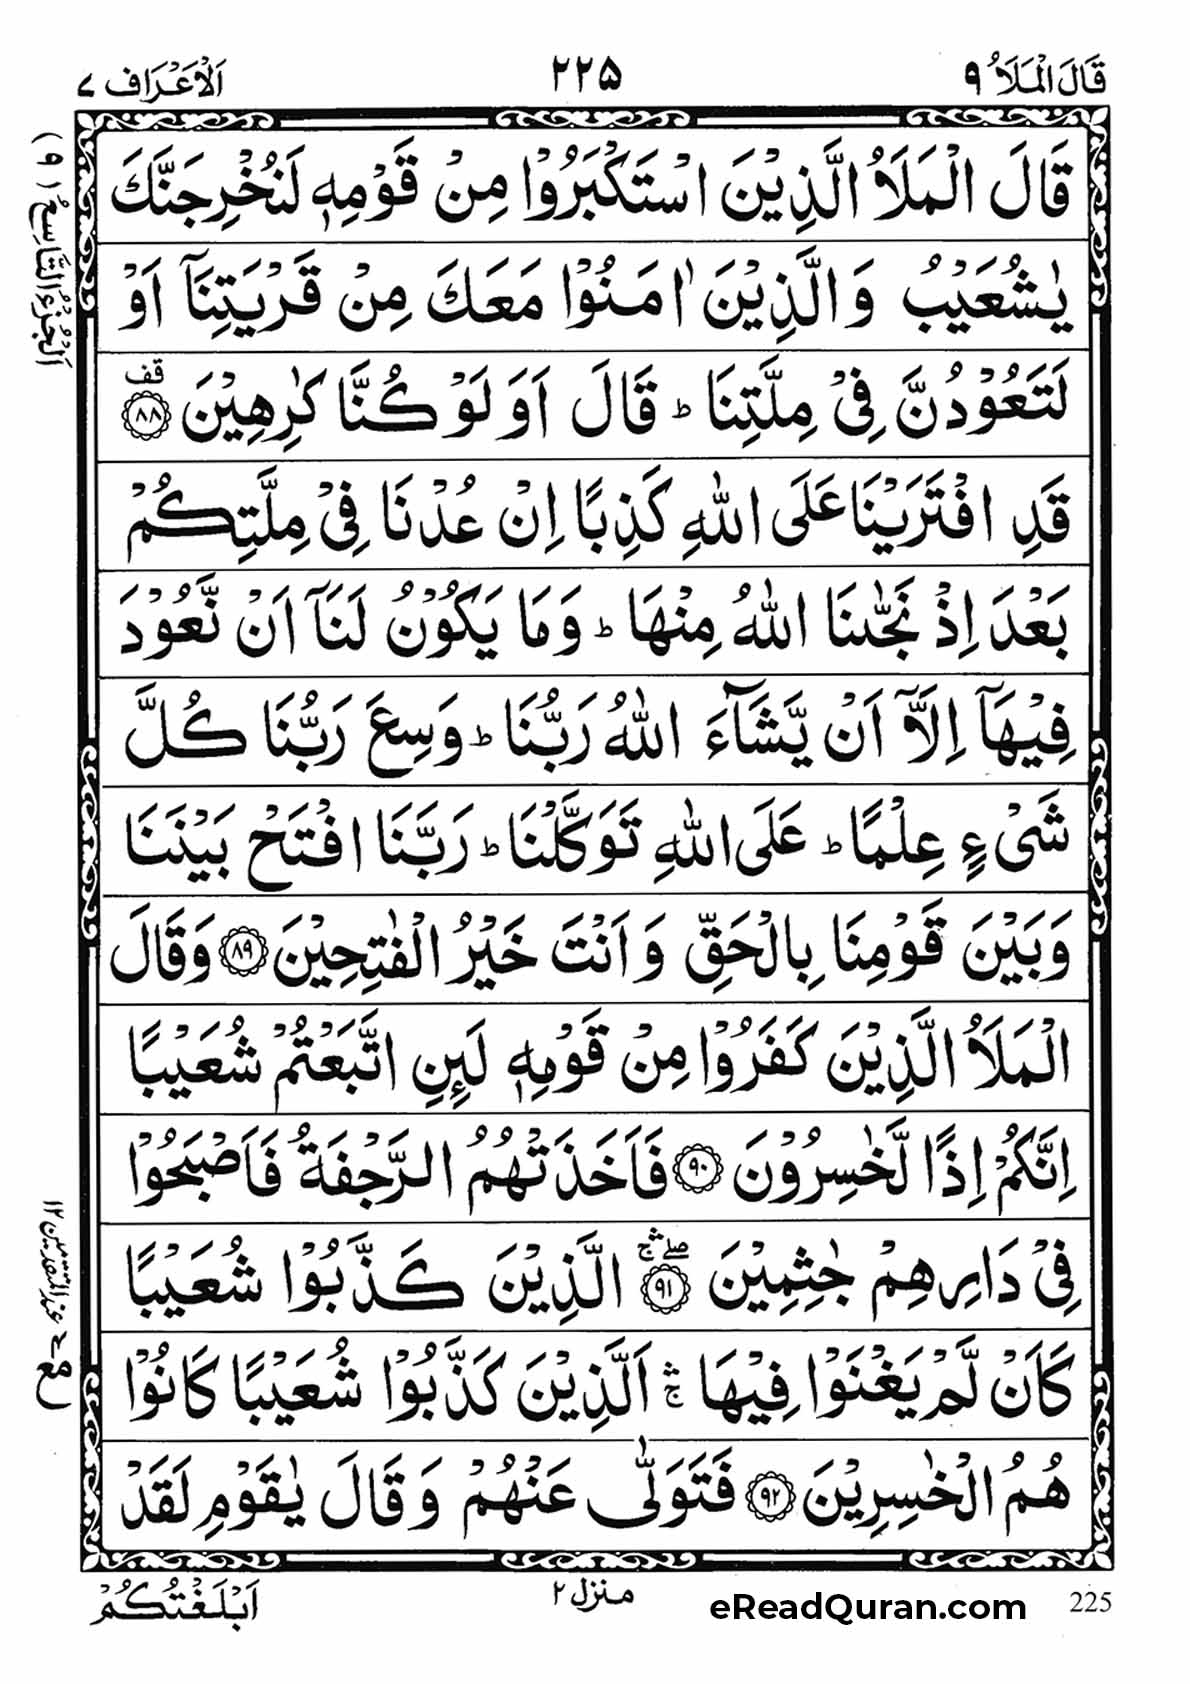 قَالَ الْمَلَاُ ٩
٢٢٥
اَلْاَعْرَاف ٧
اَلْجُزْءُ التَّاسِعُ (٩)
قَالَ الْمَلَاُ الَّذِيْنَ اسْتَكْبَرُوْا مِنْ قَوْمِهٖ لَنُخْرِجَنَّكَ
يٰشُعَيْبُ وَالَّذِيْنَ اٰمَنُوْا مَعَكَ مِنْ قَرْيَتِنَآ اَوْ
لَتَعُوْدُنَّ فِيْ مِلَّتِنَا ؕ قَالَ اَوَلَوْ كُنَّا كٰرِهِيْنَ ﴿٨٨﴾ قف
قَدِ افْتَرَيْنَا عَلَى اللّٰهِ كَذِبًا اِنْ عُدْنَا فِيْ مِلَّتِكُمْ
بَعْدَ اِذْ نَجّٰىنَا اللّٰهُ مِنْهَا ؕ وَمَا يَكُوْنُ لَنَآ اَنْ نَّعُوْدَ
فِيْهَآ اِلَّآ اَنْ يَّشَآءَ اللّٰهُ رَبُّنَا ؕ وَسِعَ رَبُّنَا كُلَّ
شَيْءٍ عِلْمًا ؕ عَلَى اللّٰهِ تَوَكَّلْنَا ؕ رَبَّنَا افْتَحْ بَيْنَنَا
وَبَيْنَ قَوْمِنَا بِالْحَقِّ وَاَنْتَ خَيْرُ الْفٰتِحِيْنَ ﴿٨٩﴾ وَقَالَ
الْمَلَاُ الَّذِيْنَ كَفَرُوْا مِنْ قَوْمِهٖ لَئِنِ اتَّبَعْتُمْ شُعَيْبًا
اِنَّكُمْ اِذًا لَّخٰسِرُوْنَ ﴿٩٠﴾ فَاَخَذَتْهُمُ الرَّجْفَةُ فَاَصْبَحُوْا
فِيْ دَارِهِمْ جٰثِمِيْنَ ﴿٩١﴾ الَّذِيْنَ كَذَّبُوْا شُعَيْبًا
كَاَنْ لَّمْ يَغْنَوْا فِيْهَا ۛۚ اَلَّذِيْنَ كَذَّبُوْا شُعَيْبًا كَانُوْا
هُمُ الْخٰسِرِيْنَ ﴿٩٢﴾ فَتَوَلّٰى عَنْهُمْ وَقَالَ يٰقَوْمِ لَقَدْ
اَبْلَغْتُكُمْ
منزل ٢
eReadQuran.com
225